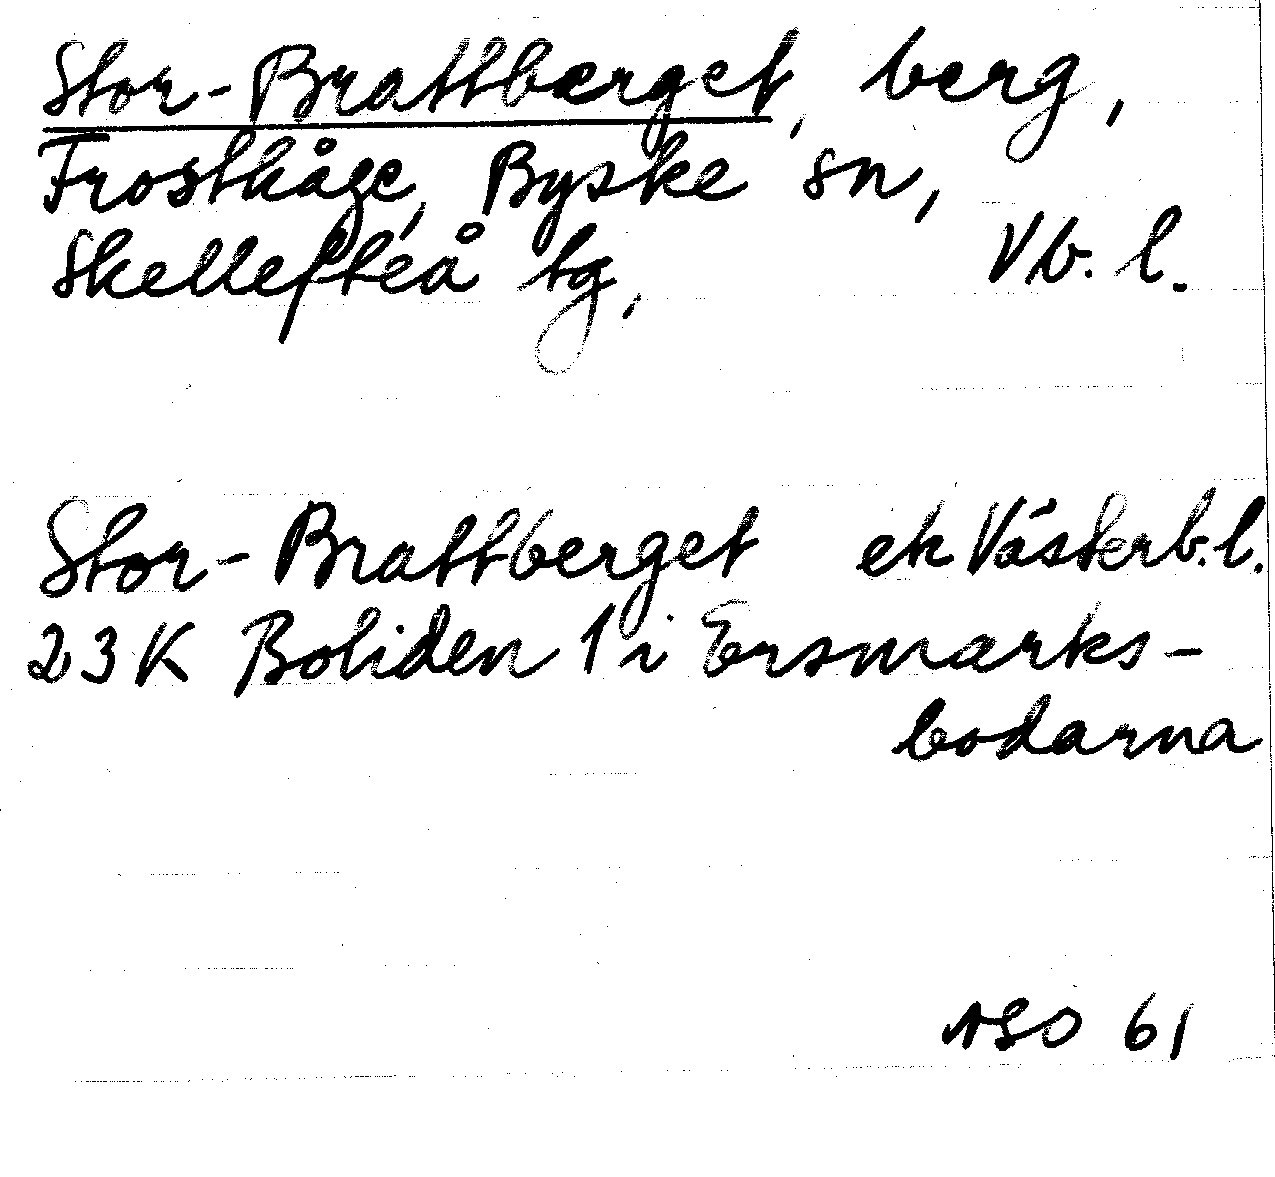 Stor-Brattberget, berg,
Frostkåge, Byske sn,
Skellefteå tg, Vb. l.
Stor-Brattberget ek Västerb. l.
23K Boliden 1 i Ersmarks-
bodarna
ASO 61